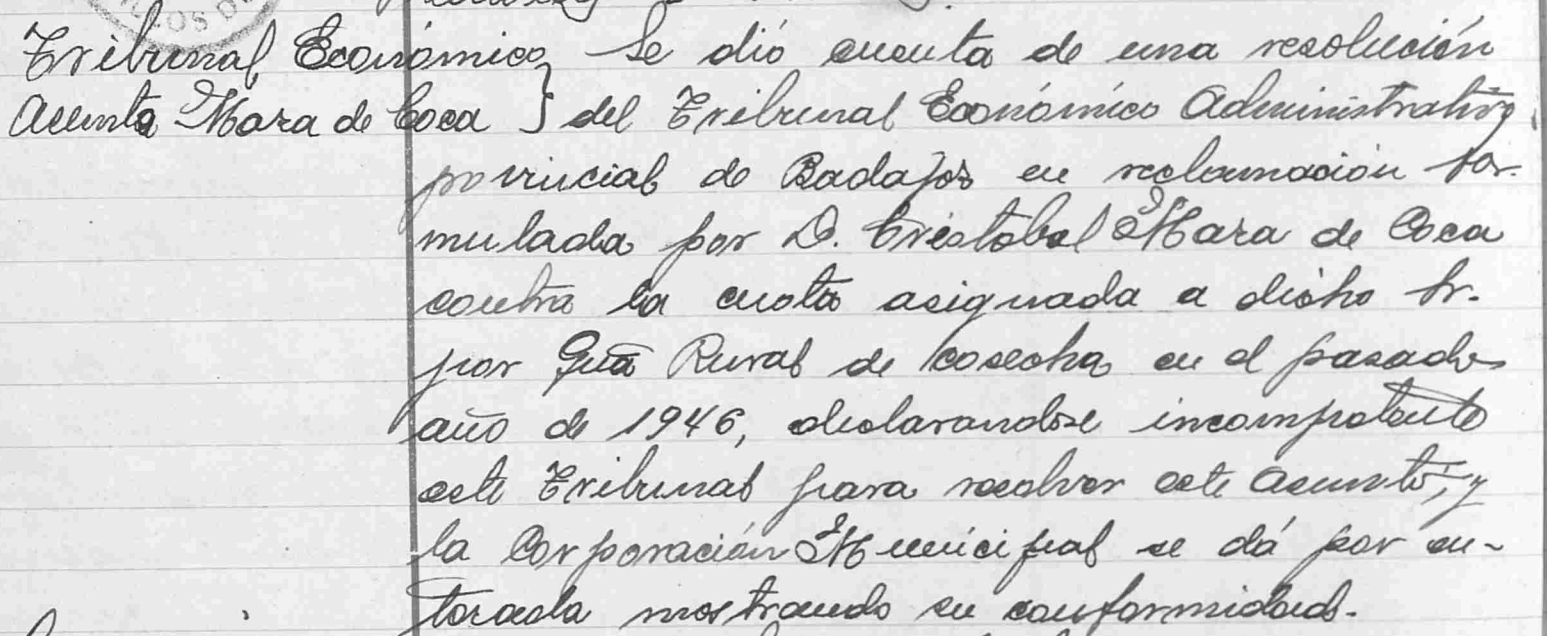 Tribunal Económico
Asunto Maza de Coca }
Se dió cuenta de una resolución
del Tribunal Económico Administrativo
provincial de Badajoz en reclamación for-
mulada por D. Cristobal Maza de Coca
contra la cuota asignada a dicho Sr.
por Gua Rural de cosecha en el pasado
año de 1946, declarandose incompetente
este Tribunal para resolver este asunto, y
la Corporación Municipal se dá por en-
terada mostrando su conformidad.